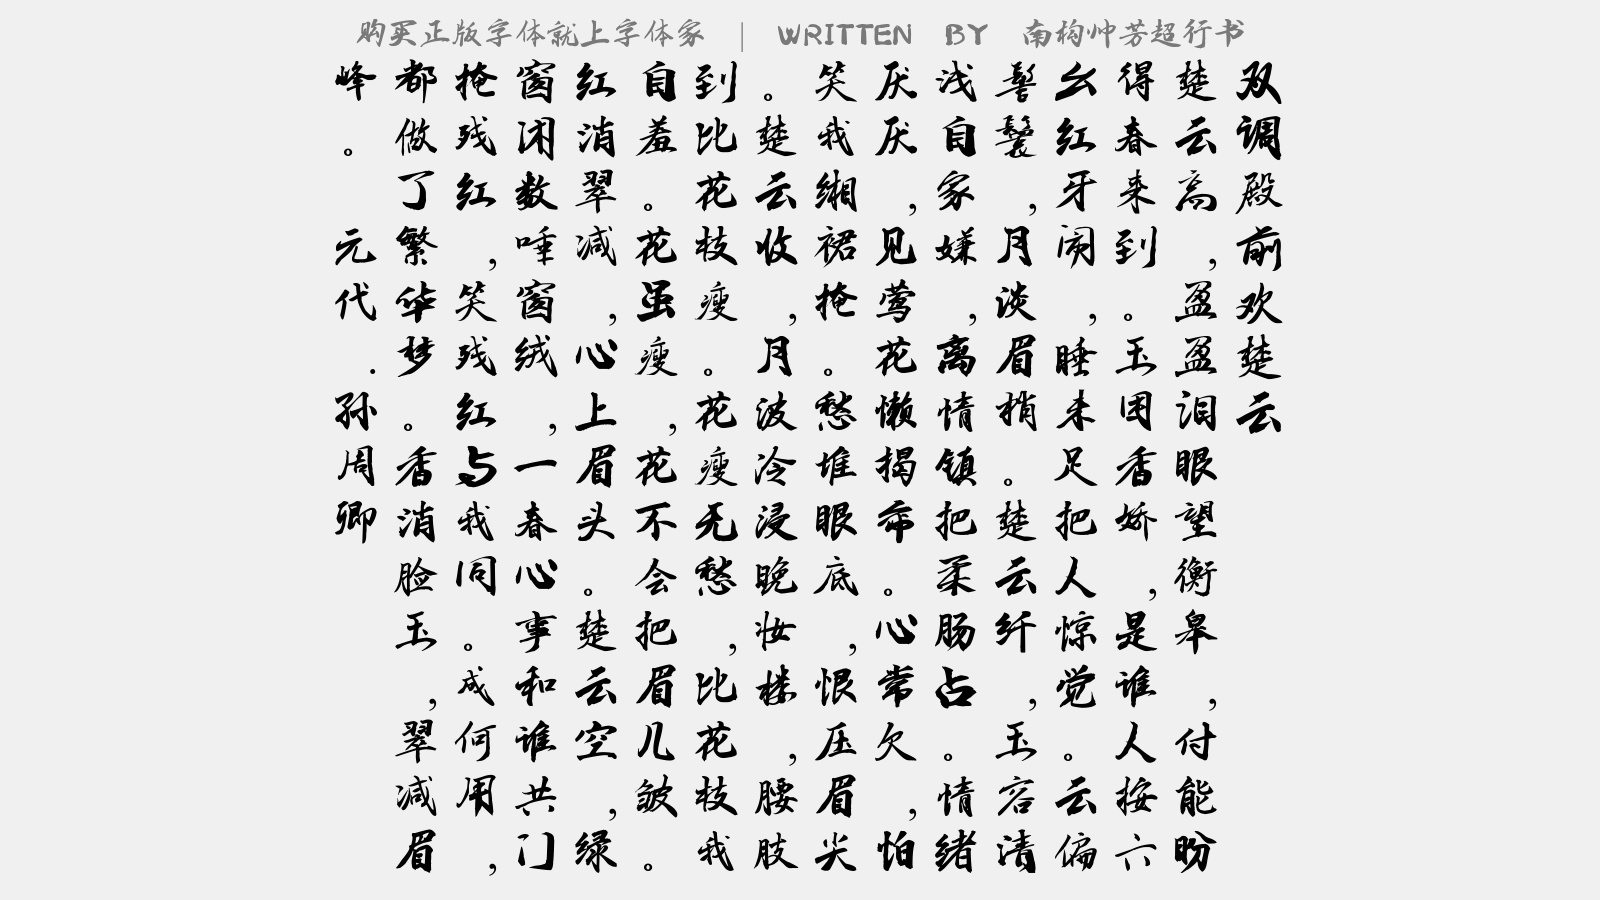 购买正版字体就上字体家 | WRITTEN BY 南构帅芳超行书
双调殿前欢楚云
楚云高，盈盈泪眼望衡皋，付能盼
得春来到。玉团香娇，是谁人按六
么红牙闹，睡未足把人惊觉。云偏
髻鬟，月淡眉梢。楚云纤，玉容清
浅自家嫌，离情镇把柔肠占。情绪
厌厌，见莺花懒揭帘。心常欠，怕
笑我缃裙掩。愁堆眼底，恨压眉尖
。楚云收，月波冷浸晚妆楼，腰肢
到比花枝瘦。花瘦无愁，比花枝我
自羞。花虽瘦，花不会把眉儿皱。
红消翠减，心上眉头。楚云空，绿
窗闲数唾窗绒，一春心事和谁共门
掩残红，笑残红与我同。成何用，
都做了繁华梦。香消脸玉，翠减眉
峰。 元代.孙周卿